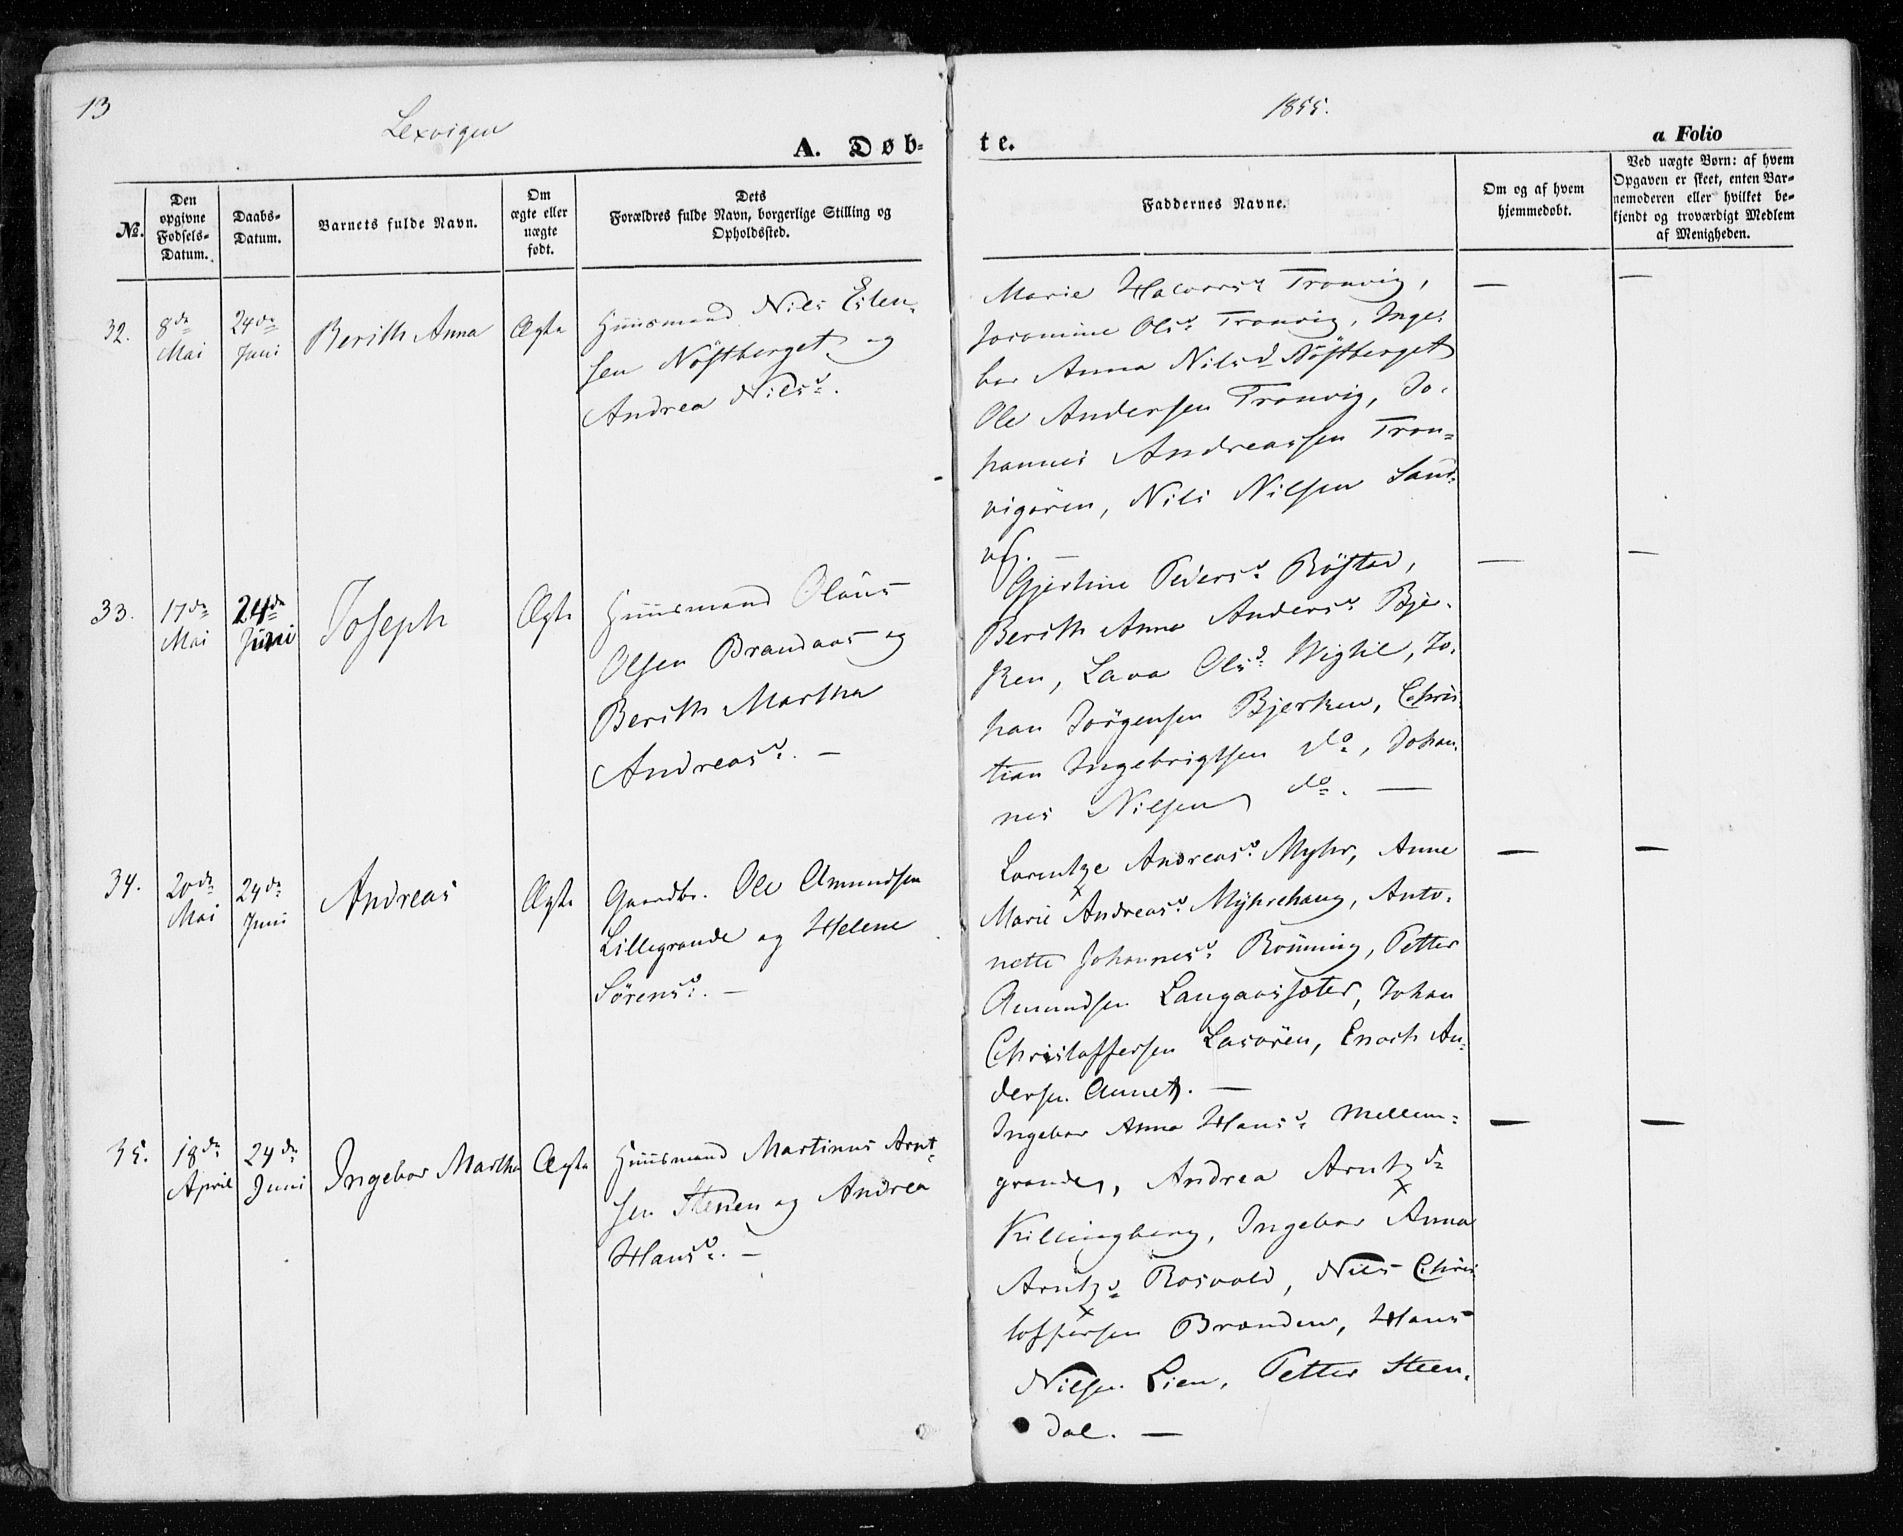 13
Lexvigen
1855.
A. Døb-
te.
a Folio
No.
Den opgivne Fødsels-Datum.
Daabs-Datum.
Barnets fulde Navn.
Om ægte eller uægte født.
Dets Forældres fulde Navn, borgerlige Stilling og Opholdssted.
Faddernes Navne.
Om og af hvem hjemmedøbt.
Ved uægte Børn: af hvem Opgaven er skeet, enten Barnemoderen eller hvilket bekjendt og troværdigt Medlem af Menigheden.
32.
8de Mai
24de Juni
Berith Anna
Ægte
Huusmand Nils Eilen-
sen Nøstberget og
Andrea Nilsd.
Marie Halvorsd Tronvig,
Joramine Olsd Tronvig, Inge-
bor Anna Nilsd Nøstberget
Ole Andersen Tronvig, Jo-
hannes Andreassen Tron-
vigören, Nils Nilsen Sand-
vig. —
—
—
33.
17de Mai
24de Juni
Joseph
Ægte
Huusmand Olaus
Olsen Brandaas og
Berith Martha
Andreasd. —
Gjertine Pedersd. Röstad,
Berith Anna Andersd Bjer-
ken, Lava Olsd. Wigtil, Jo-
han Jörgensen Bjerken, Chris-
tian Ingebrigtsen do, Johan-
nes Nilsen do. —
—
—
34.
20de Mai
24de Juni
Andreas
Ægte
Gaardbr. Ole Amundsen
Lillegrande og Helene
Sörensd. —
Lorentze Andreasd. Myhr, Anne
Marie Andreasd. Myhrehaug, Anto-
nette Johannesd. Rönning, Petter
Amundsen Langaassæter, Johan
Christoffersen Lasören, Enoch An-
dersen Aunet. —
—
—
35.
18de April
24de Juni
Ingebor Martha
Ægte
Huusmand Martinus Arnt-
sen Stenen og Andrea
Hansd. —
Ingebor Anna Hansd Mellem-
grande, Andrea Arntzd
Killingberg, Ingebor Anna
Arntzd Rosvold, Nils Chris-
toffersen Branden, Hans
Nilsen Lien, Petter Steen-
dal. —
—
—